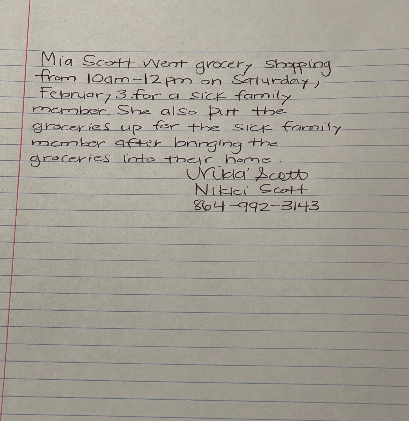 Mia Scott went grocery shopping
from 10am-12pm on Saturday,
February 3 for a sick family
member. She also put the
groceries up for the sick family
member after bringing the
groceries into their home.
Nikki Scott
Nikki Scott
864-992-3143